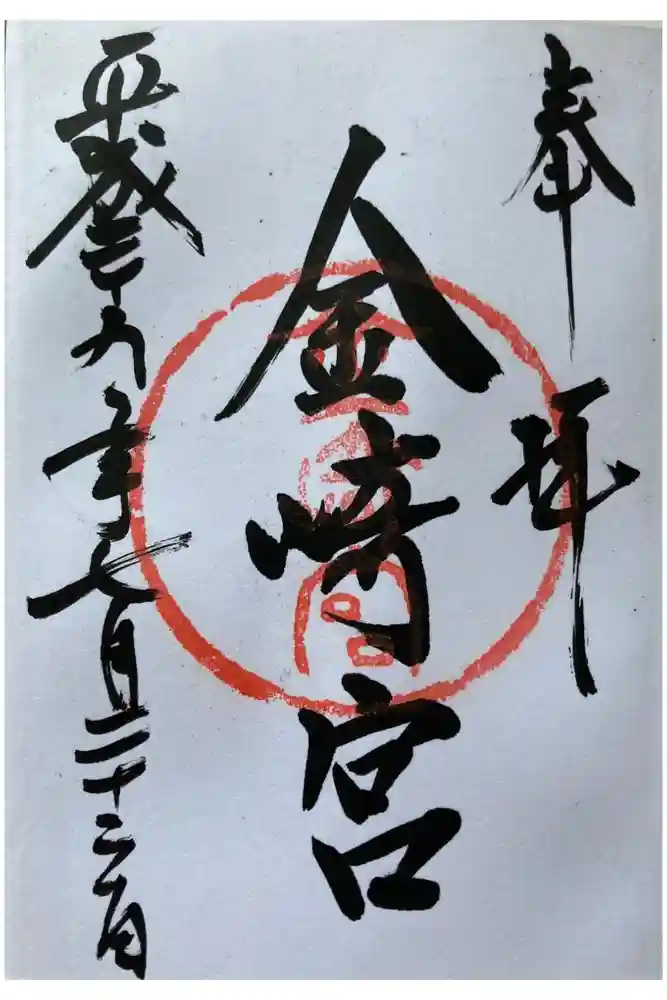 奉拝
金崎宮
平成二十九年七月二十三日